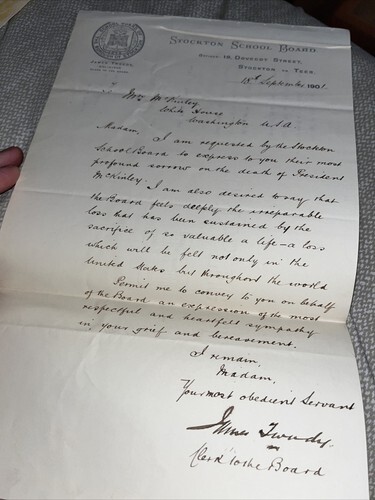 Stockton School Board.
Offices: 16, Dovecot Street,
Stockton on Tees.
18th September 1901.
Mrs McKinley,
White House,
Washington U.S.A.
Madam, I am requested by the Stockton
School Board to express to you their most
profound sorrow on the death of President
McKinley.
I am also desired to say that
the Board feels deeply the irreparable
loss that has been sustained by the
sacrifice of so valuable a life – a loss
which will be felt not only in the
United States but throughout the world
Permit me to convey to you on behalf
of the Board an expression of the most
respectful and heartfelt sympathy
in your grief and bereavement.
I remain,
Madam,
Your most obedient Servant
Clerk to the Board